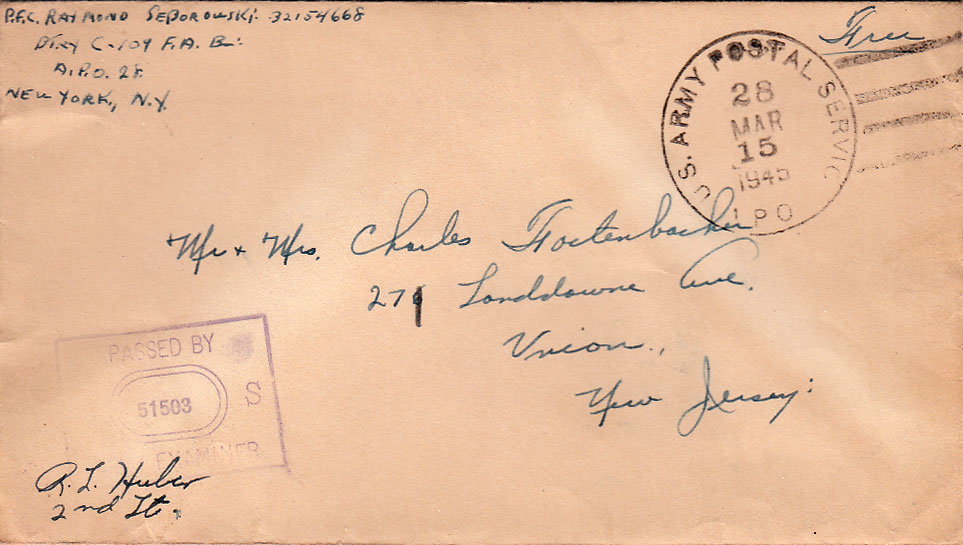 P.F.C. RAYMOND SEBOROWSKI 32154668
Btry C-109 F.A. Bn.
A.P.O. 28
NEW YORK, N.Y.
Free
U.S. ARMY POSTAL SERVIC
28
MAR
15
1945
A P O
Mr & Mrs. Charles
27 Landdowne Ave.
Union,
New Jersey.
PASSED BY
51503
S
EXAMINER
R. L. Huber
2nd Lt.